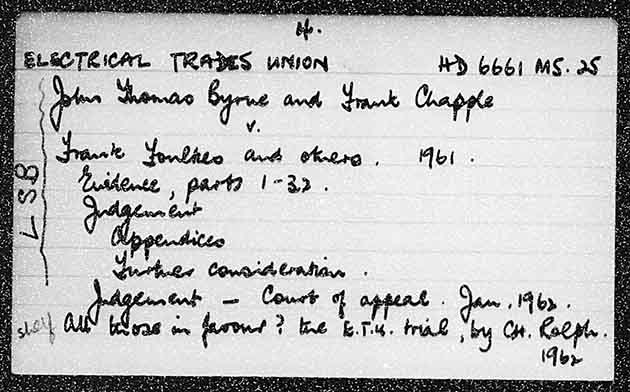 4.
ELECTRICAL TRADES UNION HD 6661 MS. 25
John Thomas Byrne and Frank Chapple
v.
Frank Foulkes and others. 1961.
Evidence, parts 1-32.
Judgement
Appendices
Further consideration.
Judgement - Court of appeal. Jan, 1962.
All those in favour? the E.T.U. trial, by CH. Rolph.
1962
LSB
shelf